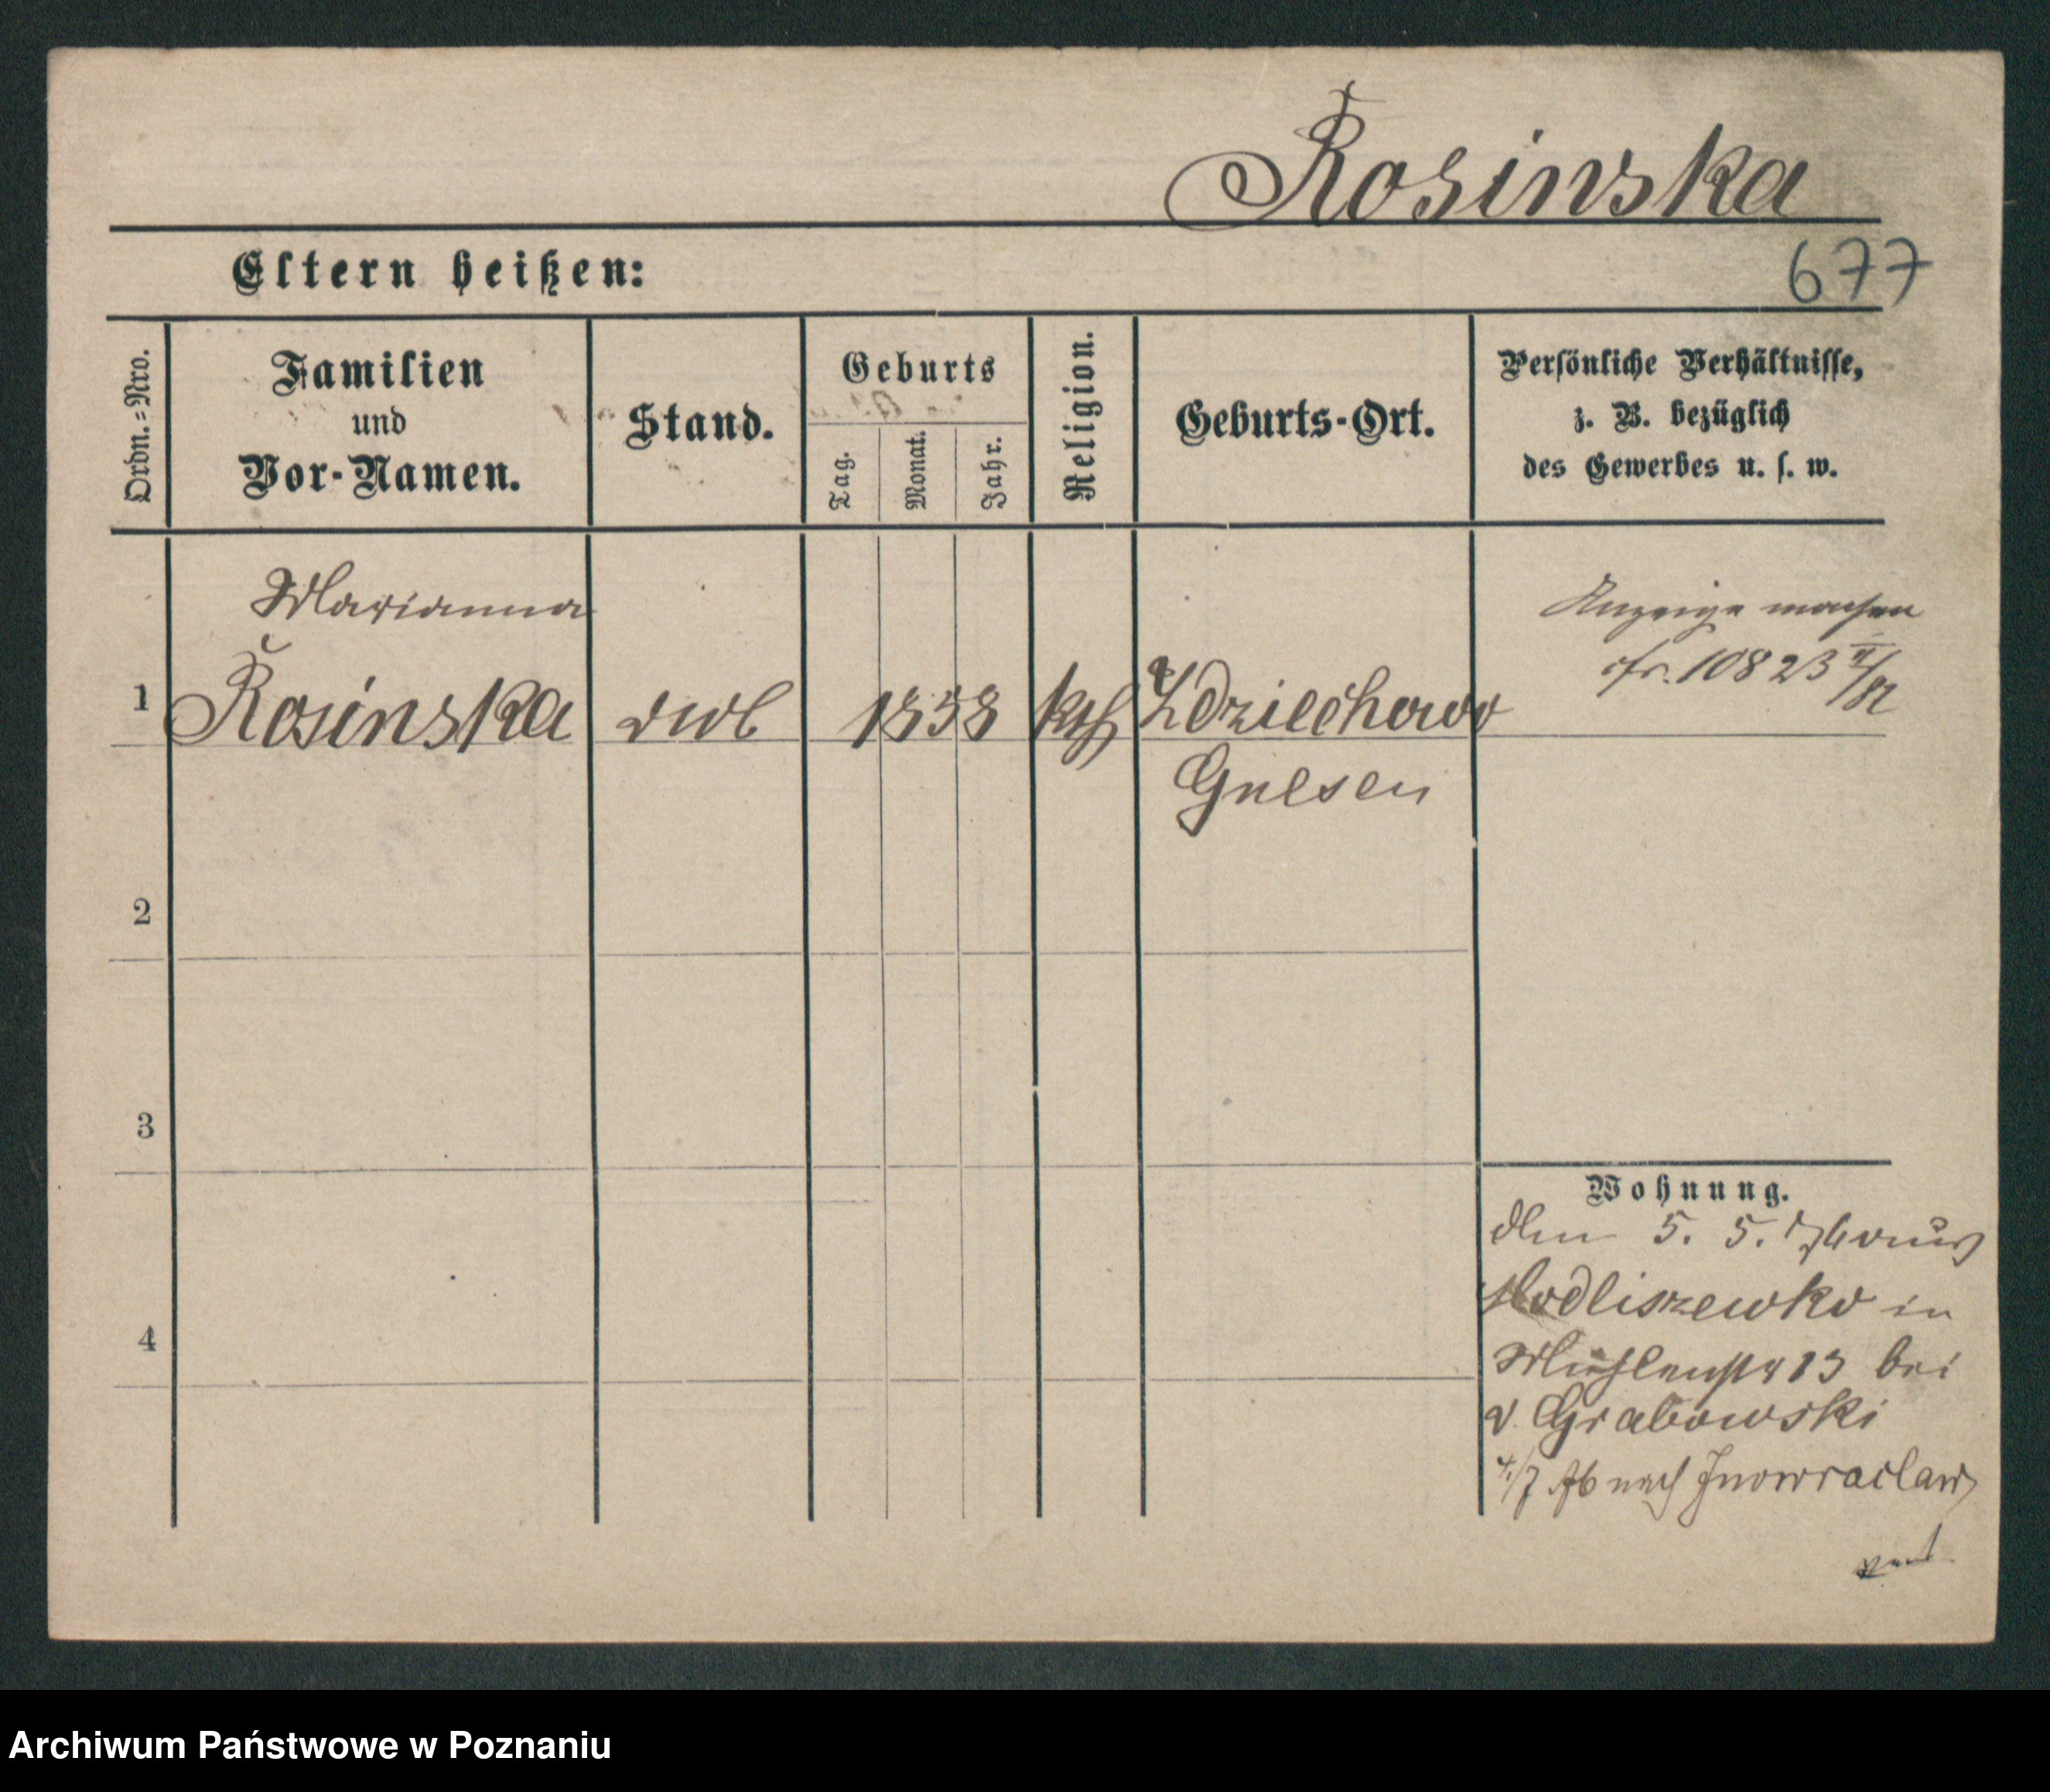 Rosinska
677
Eltern heißen:
Ordn.=Nro.
Familien
und
Vor-Namen.
Stand.
Geburts
Tag.
Monat.
Jahr.
Religion.
Geburts-Ort.
Persönliche Verhältnisse,
z. B. bezüglich
des Gewerbes u. s. w.
Marianna
1 Rosinska 1838 kth Zdziechowo
Gnesen
Anzeige machen
cfr. 10823
2
3
4
Wohnung.
den 5. 5. 76 aus
Modliszewko in
Mühlenstr 13 bei
v. Grabowski
4/7 76 nach Inowraclaw
Archiwum Państwowe w Poznaniu